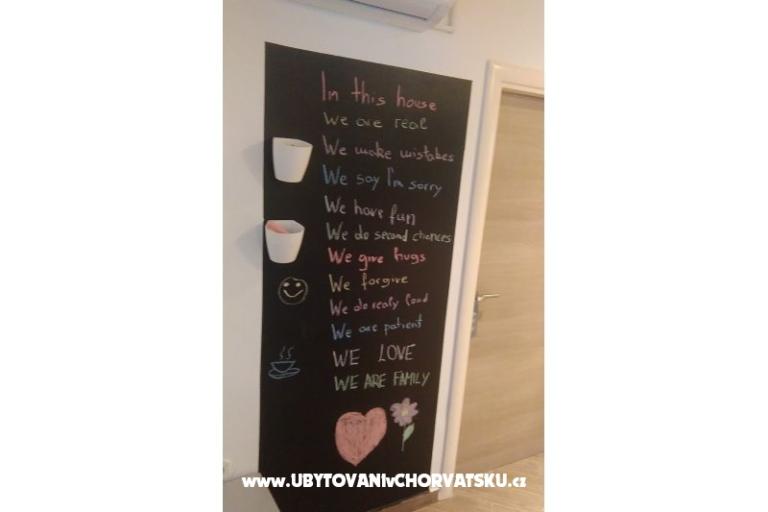 In this house
We are real
We make mistakes
We say I'm sorry
We have fun
We do second chances
We give hugs
We forgive
We do realy loud
We are patient
WE LOVE
WE ARE FAMILY
www.UBYTOVANIvCHORVATSKU.cz